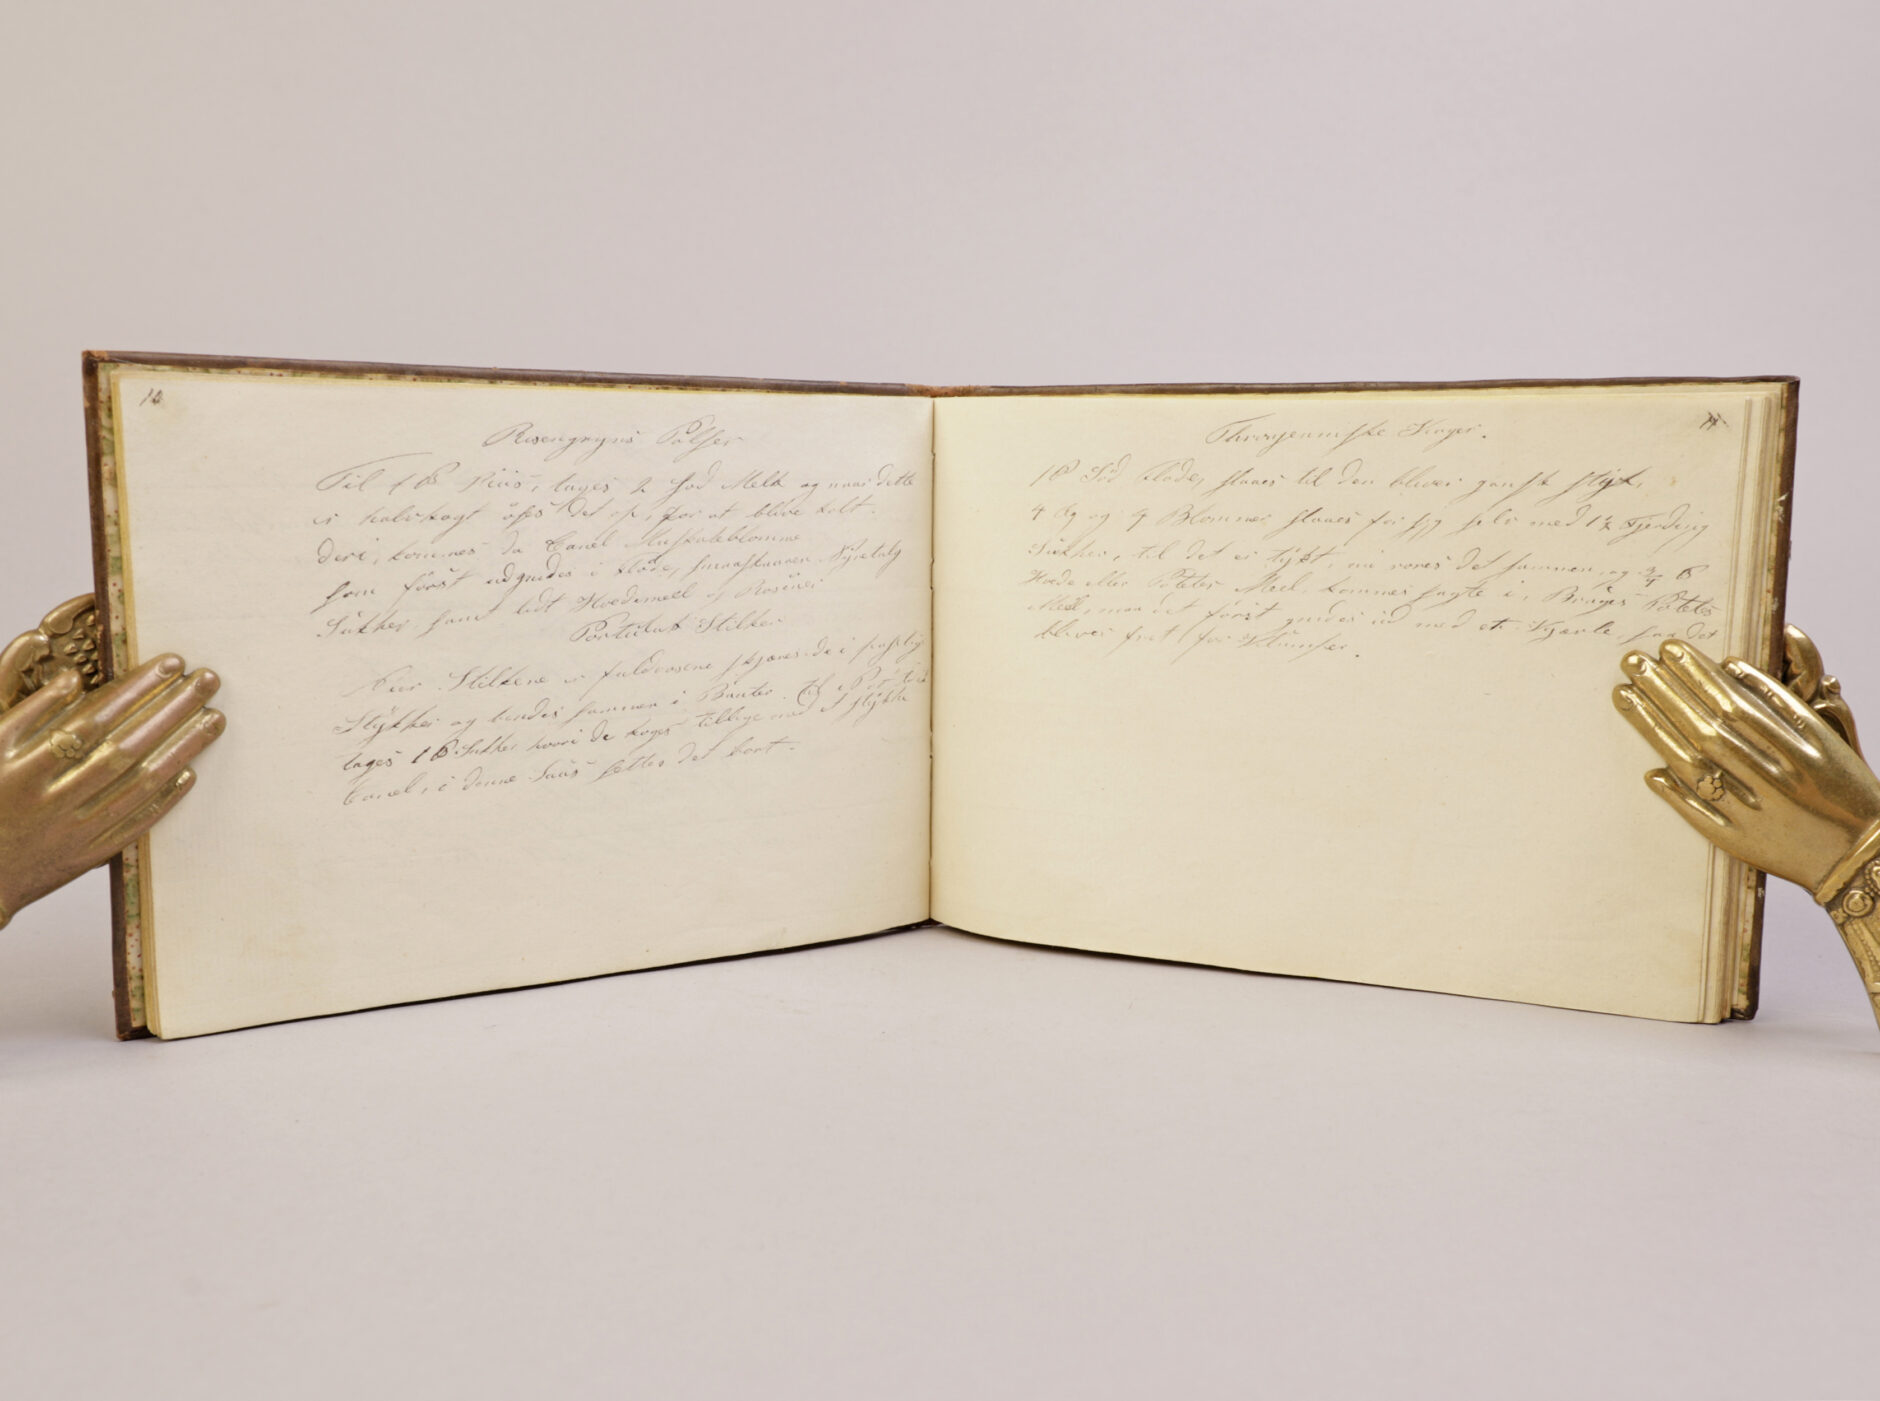 10
Risengryns Pölser
Til 1 ℔ Riis, tages 2 Sød Melk og naar dette
er halvkogt øses det op, for at blive kolt.
deri, kommes da Canel Muskateblomme
som först udgnides i Fløde, smaaskaaren Nyretalg
Sukker, samt lidt Hvedemeel og Rosiner
Portulak Stilker
Naar Stilkene er fuldvoxne skjæres de i
Stÿkker og bindes sammen i Bunter, til
tages 1 ℔ Sukker hvori de koges tillige med et stÿkke
Canel, i denne Saus settes det bort.
11
Kager.
1 ℔ Sød Fløde, slaaes til den bliver gansk stÿf,
4 Æg og 4 Blommer slaaes for sig selv med 1½ Fjerding
Sukker, til det er tÿkt, nu røres det sammen, og ¾ ℔
Hvede eller Potetes Meel, kommes sagte i, Bruges Potetes
Meel, maa det först gnides ud med en Kjærle, saa det
bliver frit for Klumper.